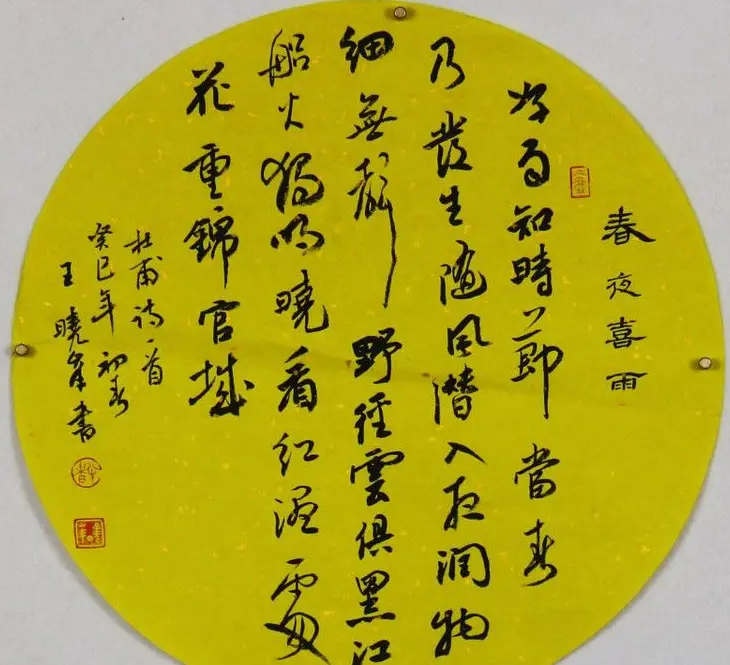 春夜喜雨
好雨知時節當春
乃發生隨風潛入夜潤物
細無聲野徑雲俱黑江
船火獨明曉看紅濕處
花重錦官城
杜甫詩一首
癸巳年初春
王曉書